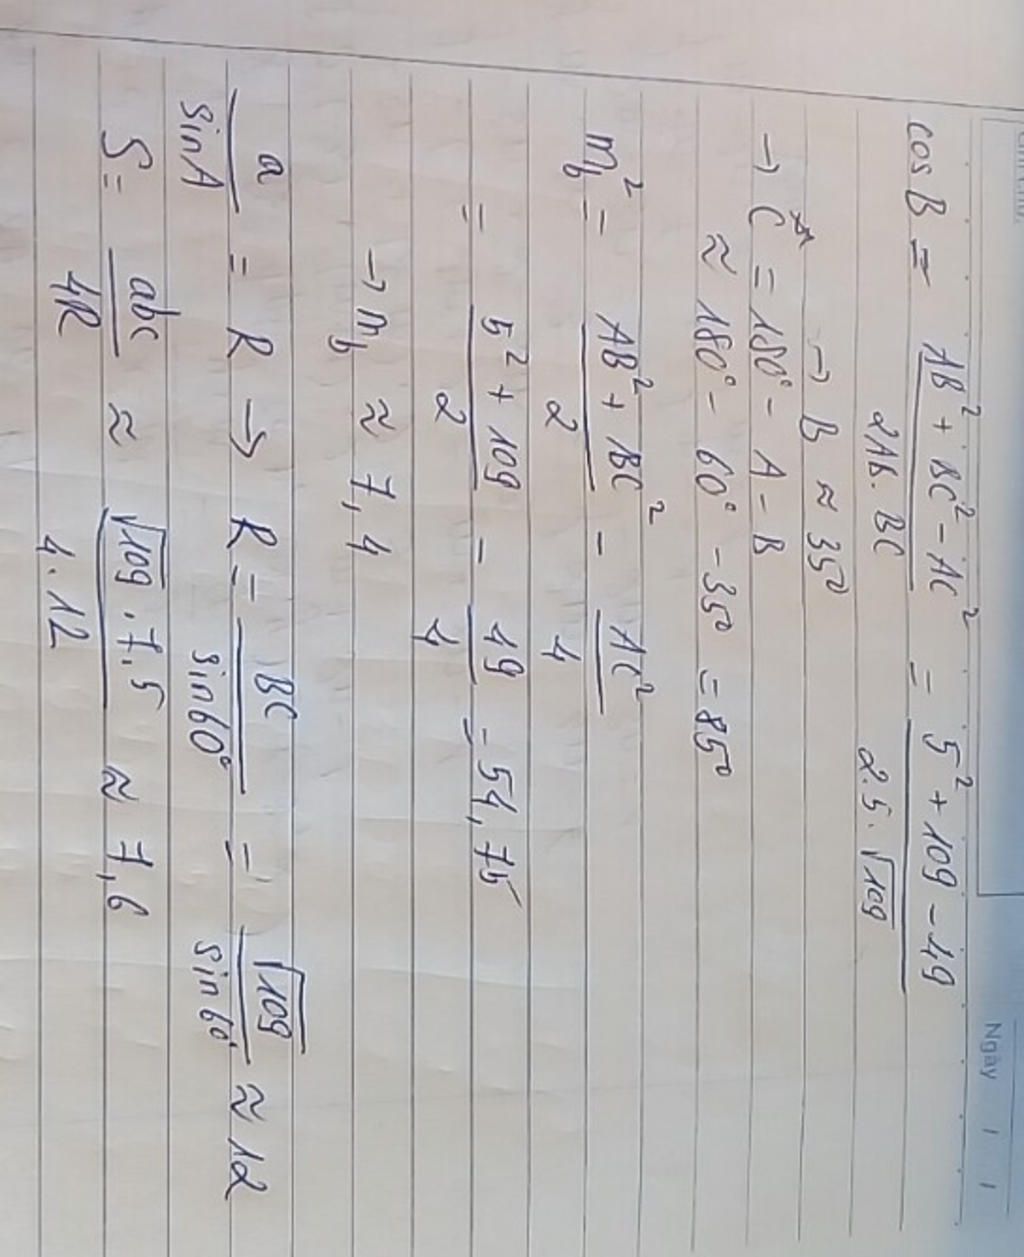 Ngày / /
cos B = (AB² + BC² - AC²) / (2AB. BC) = (5² + 109 - 49) / (2. 5. √109)
→ B ≈ 35°
→ C = 180° - A - B
≈ 180° - 60° - 35° = 85°
m_b² = (AB² + BC²) / 2 - AC² / 4
= (5² + 109) / 2 - 49 / 4 = 54,75
→ m_b ≈ 7,4
a / sin A = R → R = BC / sin60° = √109 / sin60° ≈ 12
S = abc / 4R ≈ (√109 . 7. 5) / (4. 12) ≈ 7,6